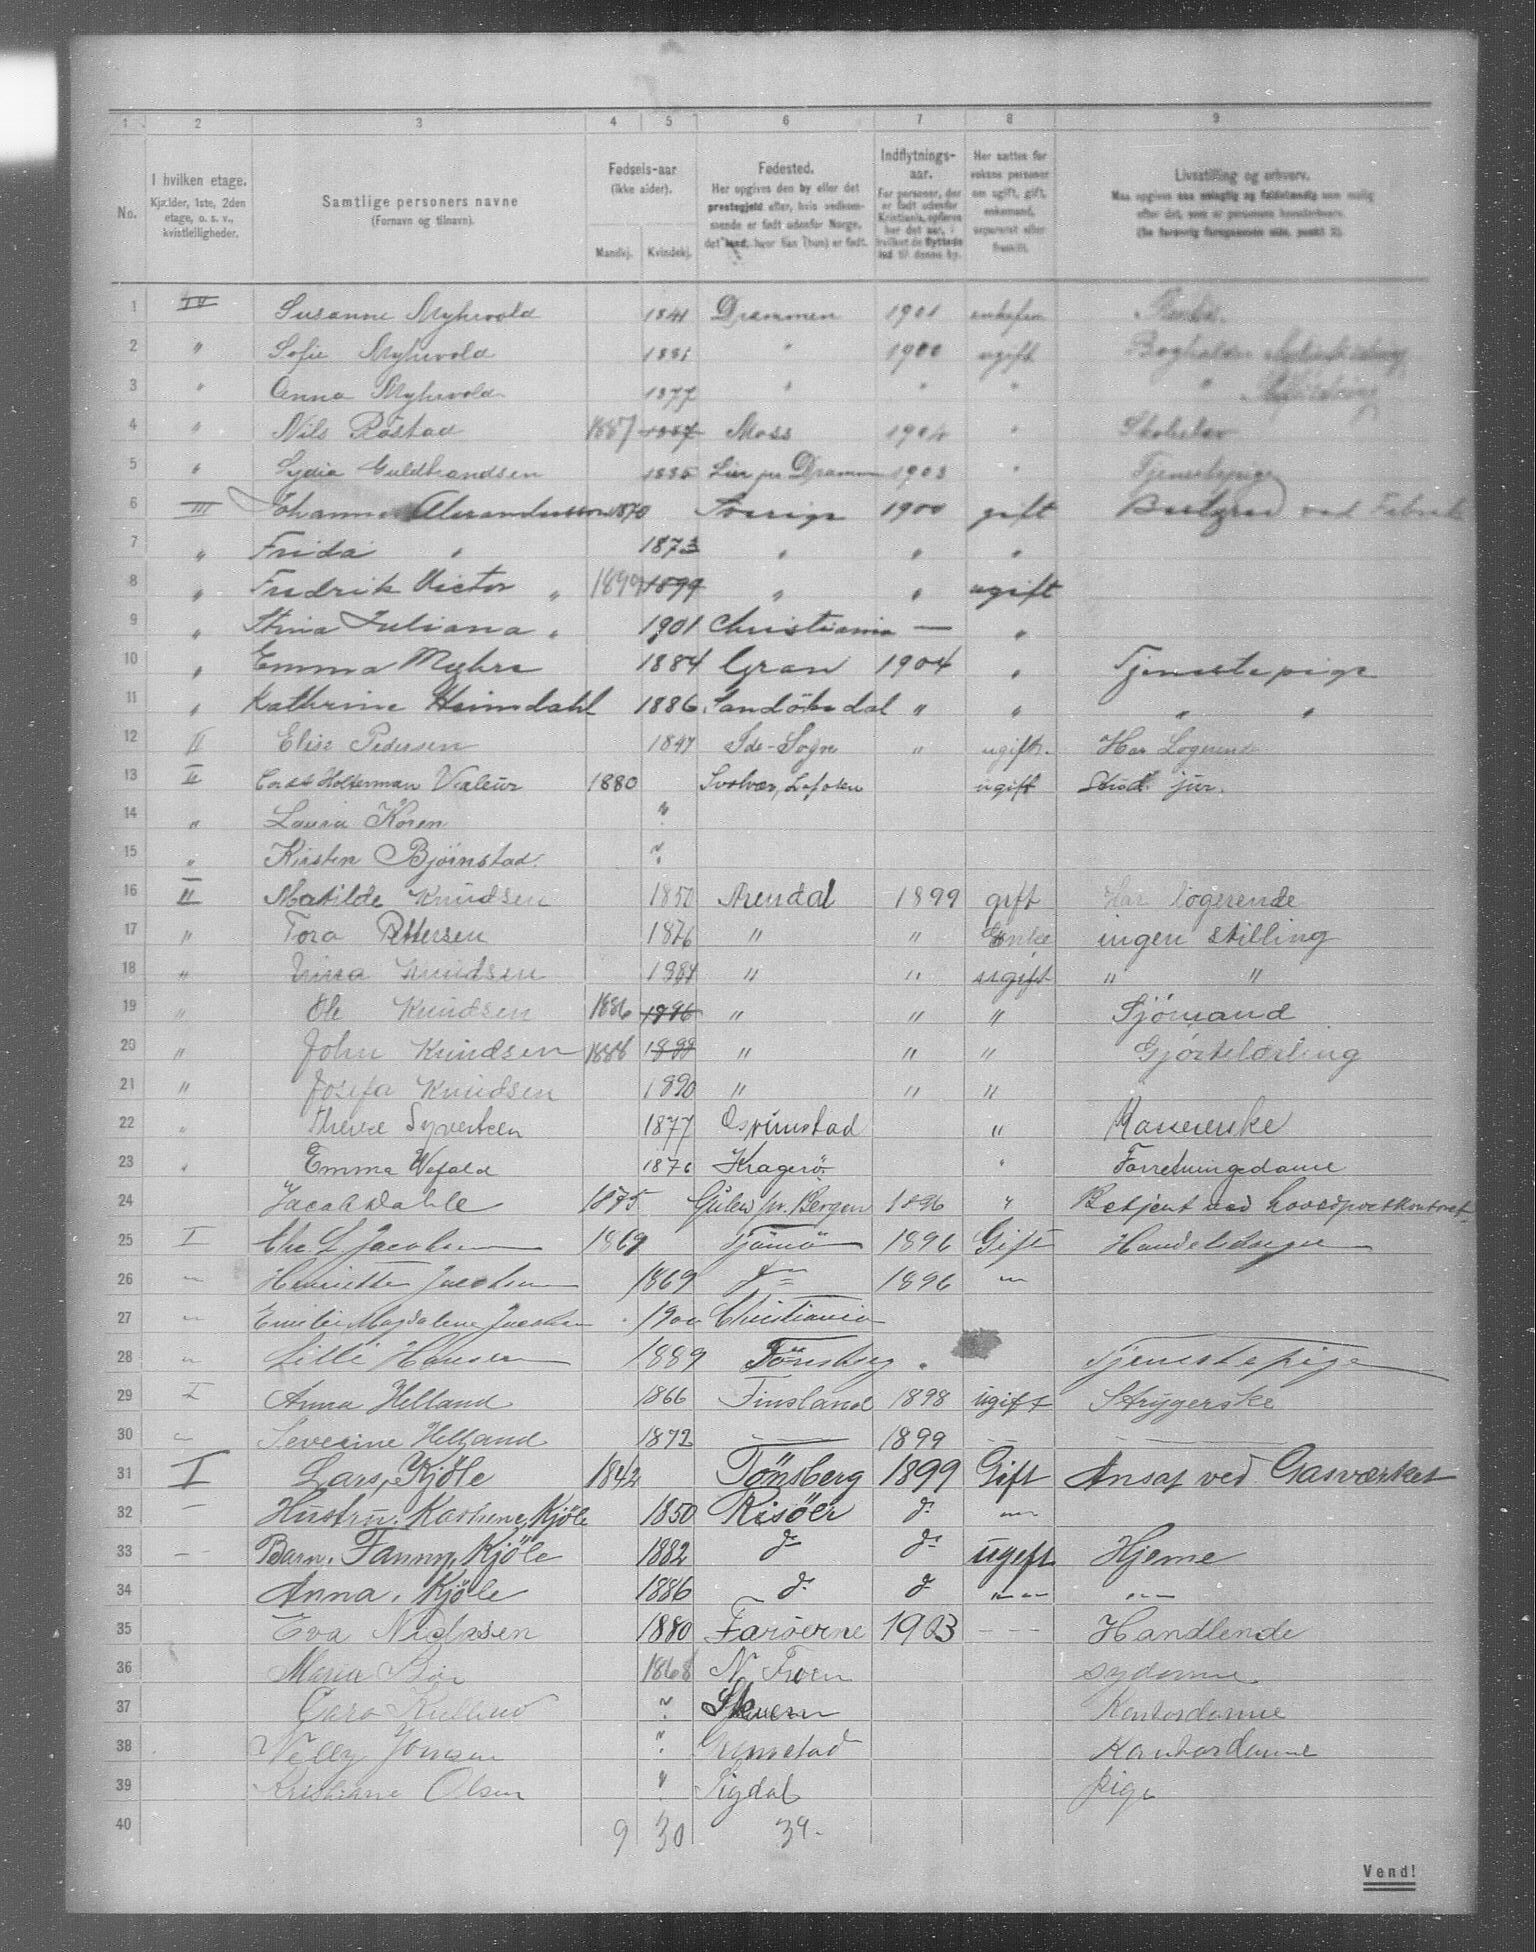 1 2 3 4 5 6 7 8 9
No. I hvilken etage. Kjælder, 1ste, 2den etage, o. s. v., kvistleiligheder. Samtlige personers navne (Fornavn og tilnavn). Fødsels-aar (ikke alder). Mandkj. Kvindekj. Fødested. Her opgives den by eller det prestegjeld eller, hvis vedkommende er født udenfor Norge, det land, hvor han (hun) er født. Indflytnings-aar. For personer, der er født udenfor Kristiania, opføres her det aar, i hvilket de flyttede ind til denne by. Her sættes for voksne personer om ugift, gift, enkemand, separeret eller fraskilt. Livsstilling og erhverv.
1 IV Susanne Myhrvold 1841 Drammen 1901
2 " Sofie Myhrvold 1881 " 1900 ugift
3 " Anna Myhrvold 1877 " " " "
4 " Nils Röstad 1887 1887 Moss 1904 "
5 " Lydia Guldbrandsen 1885 Lier pr Drammen 1903 " Tjenestepige
6 III Johannes Alexandersson 1870 Sverige 1900 gift ved Fabrik
7 " Frida " 1873 " " "
8 " Fredrik Victor " 1899 1899 " " ugift
9 " Stina Juliana " 1901 Christiania — "
10 " Emma Myhre 1884 Gran 1904 " Tjenestepige
11 " Kathrine Heimdahl 1886 Sandökedal " " " "
12 II Elise Pedersen 1847 Ide-Sogn " ugift. Har Logerende
13 II Holterman Valeur 1880 Svolvær, Lofoten ugift Stud. jur.
14 " Laura Koren "
15 " Kirsten Bjørnstad. "
16 II Matilde Knudsen 1850 Arendal 1899 gift Har logerende
17 " Tora Pettersen 1876 " " Enke ingen stilling
18 " Knudsen 1884 " " ugift " "
19 " Ole Knudsen 1886 1886 " " " Sjömand
20 " John Knudsen 1888 1888 " " " Gjørtelærling
21 " Josefa Knudsen 1890 " " "
22 " Therese Syvertsen 1877 " Masserske
23 " Emma Wefald 1876 Kragerö " Forretningsdame
24 Jacob Dahle 1875 Gulen pr. Bergen 1896 " Betjent ved hovedpostkontoret
25 I Chr. L Jacobsen 1869 Tjömö 1896 Gift
26 " Henriette Jacobsen 1869 1896 "
27 " Emilie Magdalene Jacobsen 1900 Christiania
28 " Lilli Hansen 1889 Tönsberg Tjenestepige
29 I Anna Helland 1866 Finsland 1898 ugift Strygerske
30 " Severine Helland 1872 — 1899 — —
31 I Lars, Kjöle 1842 Tönsberg 1899 Gift Ansat ved Gasværket
32 — Hustru. Kathrine, Kjöle 1850 Risöer do "
33 — Barn. Fanny, Kjöle 1882 do do ugift Hjeme
34 Anna. Kjöle 1886 do do " "
35 Eva Niclasen 1880 Farøerne 1903 - - - Handlende
36 Maria 1868 sydame
37 " Kontordame
38 Nelly Jonsen " Grimstad Kontordame
39 Kristiane Olsen " Sigdal pige
40 9 30 39.
Vend!